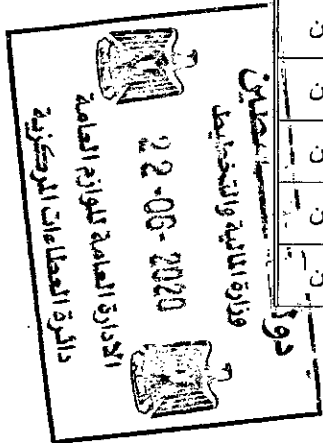 دولة فلسطين
وزارة المالية والتخطيط
22-06-2020
الإدارة العامة للوازم العامة
دائرة العطاءات المركزية
ن
ن
ن
ن
ن